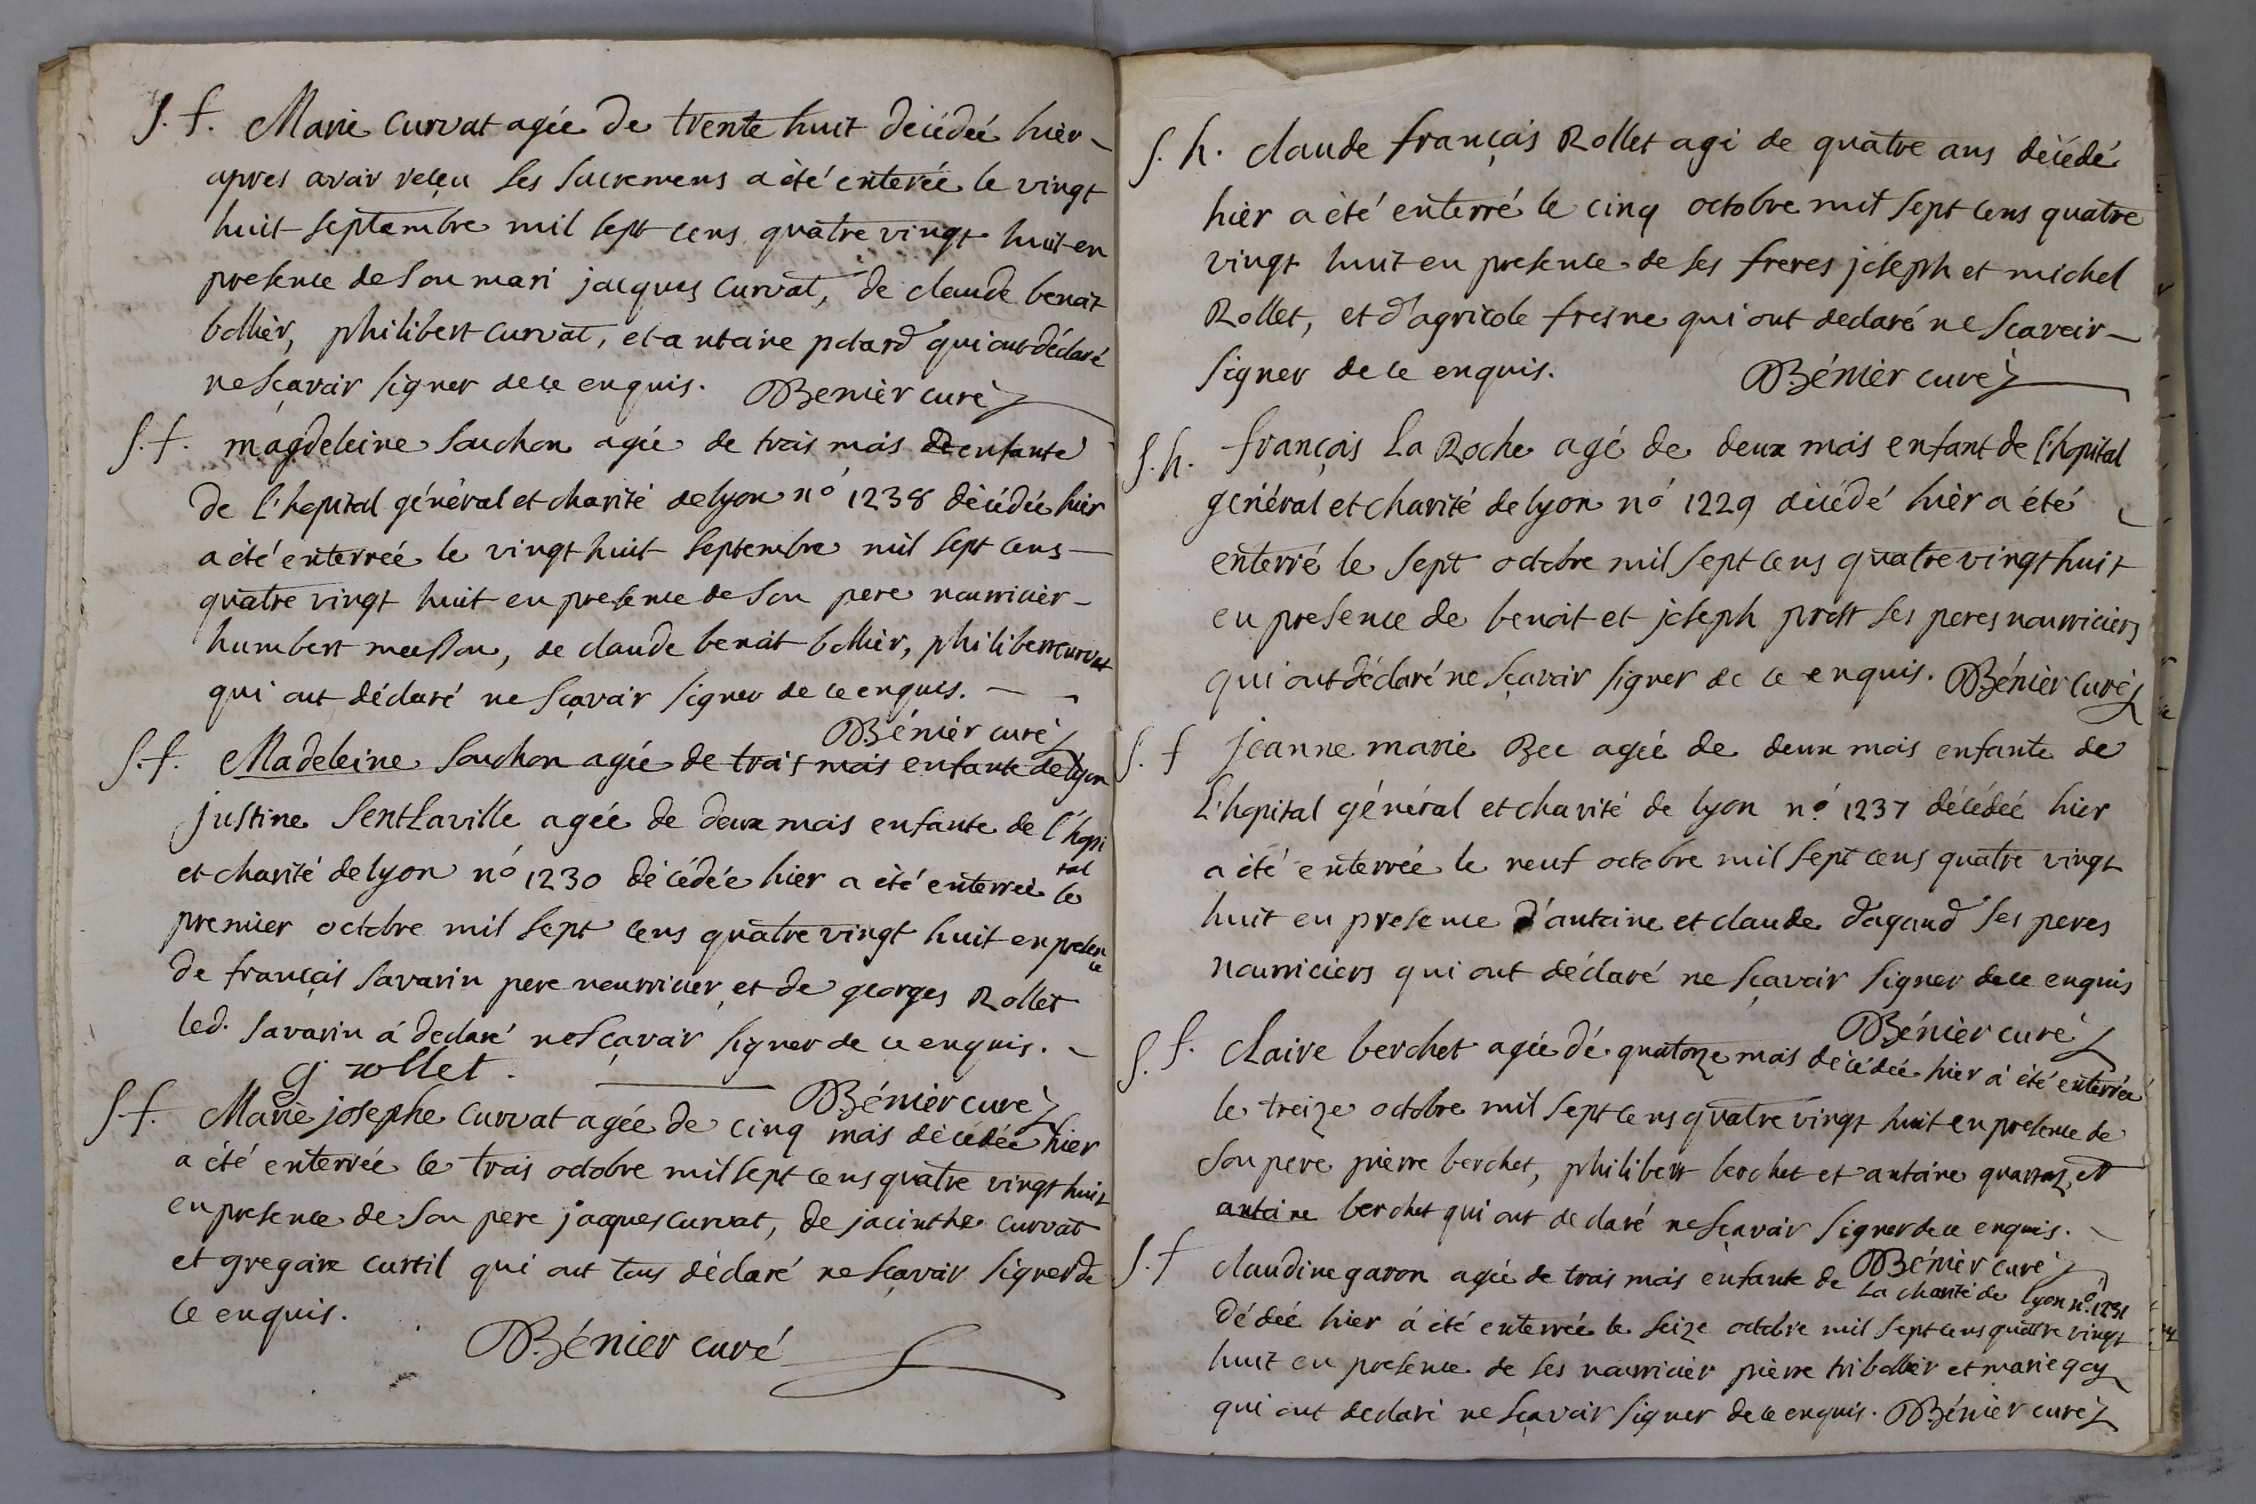 S. f. Marie Curvat agée de trente huit décédée hier
apres avoir reçeu ses sacremens a été enterée le vingt
huit septembre mil sept cens quatre vingt huit en
presence de son mari jacques Curvat, de claude benoit
bollier, philibert curvat, et antoine polard qui ont déclaré
ne sçavoir signer de ce enquis. Benier curé
S. f. magdeleine souchon agée de trois mois enfante
de l'hopital général et charité de lyon nº 1238 décédée hier
a été enterreé le vingt huit septembre mil sept cens
quatre vingt huit en presence de son pere nourricier
humbert , de claude benoit bollier, philibert curvat
qui ont déclaré ne sçavoir signer de ce enquis.
Bénier curé
S. f. Madeleine souchon agée de trois mois enfante de lyon
justine Sentlaville agée de deux mois enfante de l'hopi
tal
et charité de lyon nº 1230 décédée hier a été enterreé le
premier octobre mil sept cens quatre vingt huit en presen
ce
de françois savarin pere nourricier et de georges Rollet
led. savarin á declaré ne sçavoir signer de ce enquis.
g rollet.
Bénier curé
S. f. Marie josephe curvat agée de cinq mois décédée hier
a été enterrée le trois octobre mil sept cens quatre vingt huit
en presence de son pere jaques curvat, de jacinthe curvat
et gregoire curtil qui ont tous déclaré ne sçavoir signer de
ce enquis.
Bénier curé
S. h. claude françois Rollet agé de quatre ans décédé
hier a été enterré le cinq octobre mil sept cens quatre
vingt huit en presence de ses freres joseph et michel
Rollet, et d'agricole fresne qui ont declaré ne sçavoir
signer de ce enquis. Bénier curé
S. h. françois La Roche agé de deux mois enfant de l'hopital
général et charité de lyon nº 1229 décédé hier a été
enterré le sept octobre mil sept cens quatre vingt huit
en presence de benoit et joseph prost ses peres nourriciers
qui ont déclaré ne sçavoir signer de ce enquis. Bénier curé
S. f jeanne marie Bec agée de deux mois enfante de
l'hopital général et charité de lyon nº 1237 décédeé hier
a été enterreé le neuf octobre mil sept cens quatre vingt
huit en presence d'antoine et claude dagaud ses peres
nourriciers qui ont déclaré ne sçavoir signer de ce enquis
Bénier curé
S. f. Claire berchet agée de quatorze mois décédée hier á été enterrée
le treize octobre mil sept cens quatre vingt huit en presence de
son pere pierre berchet, philibert berchet et antoine et
antoine berchet qui ont declaré ne sçavoir signer de ce enquis.
Bénier curé
S. f claudine garon agée de trois mois enfante de la charité de lyon nº 1231
dédée hier á été enterreé le seize octobre mil sept cens quatre vingt
huit en presence de ses nourricier pierre tribollier et marie goy
qui ont declaré ne sçavoir signer de ce enquis. Bénier curé